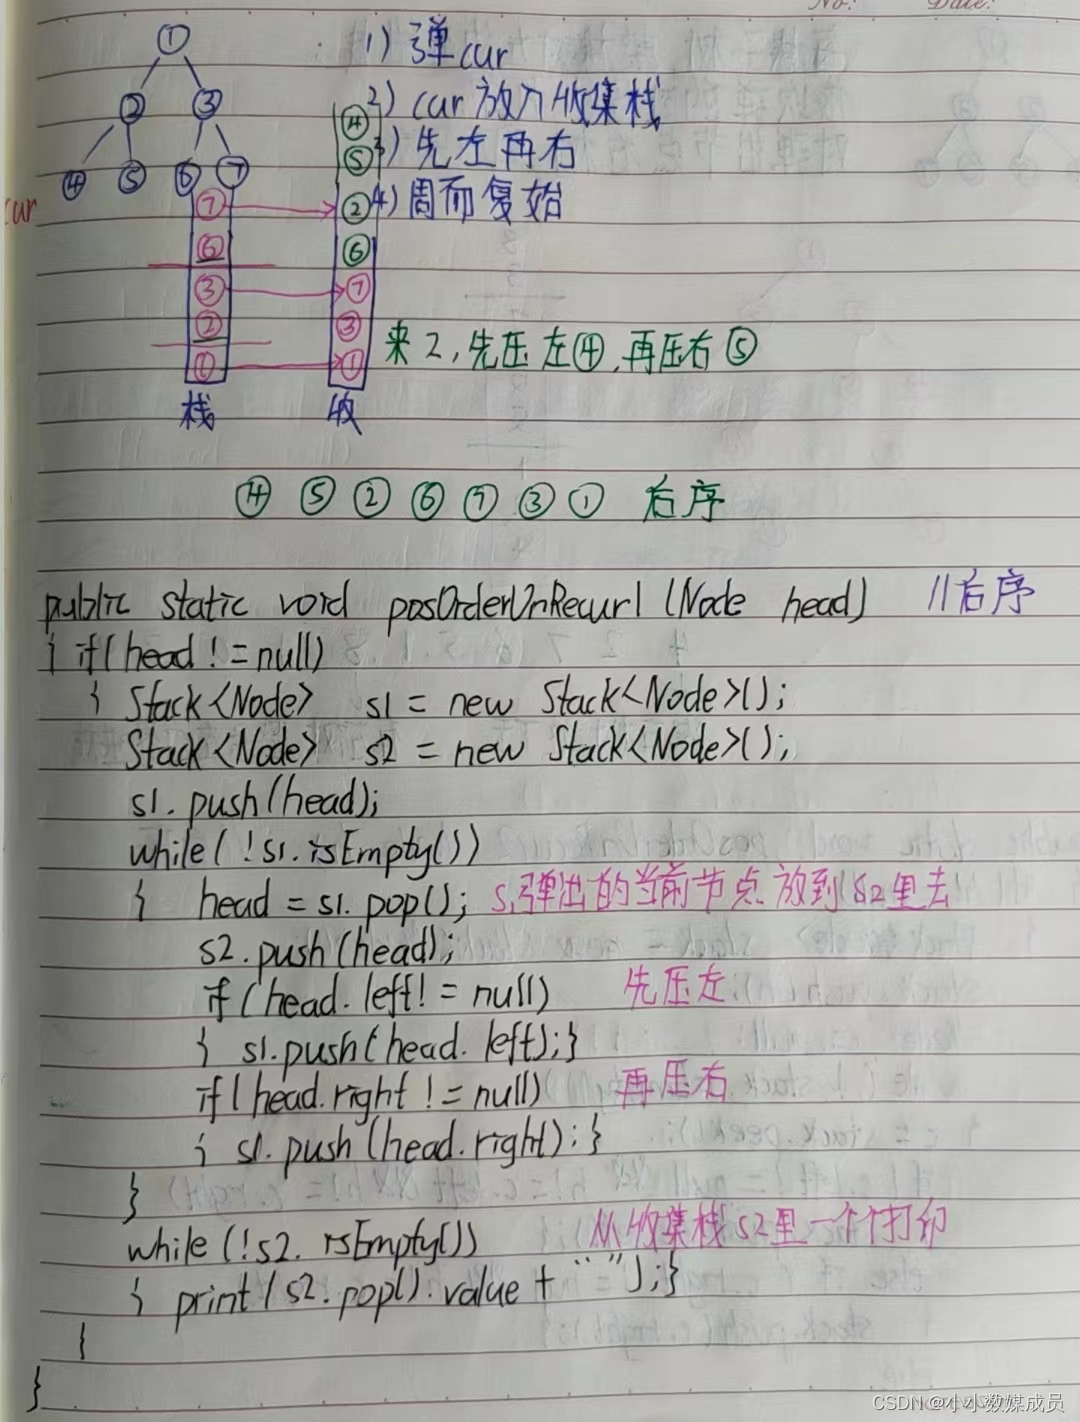 No: Date:
①
② ③
④ ⑤ ⑥ ⑦
cur
1) 弹cur
2) cur放入收集栈
3) 先左再右
4) 周而复始
⑦
⑥
③
②
①
栈
④
⑤
②
⑥
⑦
③
①
收
来2,先压左④,再压右⑤
④ ⑤ ② ⑥ ⑦ ③ ① 后序
public static void posOrderUnRecur1(Node head) //后序
{ if(head != null)
{ Stack<Node> s1 = new Stack<Node>();
Stack<Node> s2 = new Stack<Node>();
s1.push(head);
while(!s1.isEmpty())
{ head = s1.pop(); s1弹出的当前节点放到s2里去
s2.push(head);
if(head.left != null) 先压左
{ s1.push(head.left);}
if(head.right != null) 再压右
{ s1.push(head.right);}
}
while(!s2.isEmpty()) 从收集栈s2里一个个打印
{ print(s2.pop().value + " ");}
}
}
CSDN @小小数媒成员